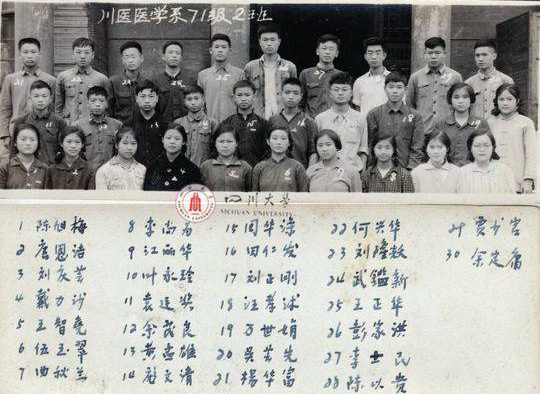 川医医学系71级2班
四川大学
SICHUAN UNIVERSITY
1 陈旭梅
2 唐恩浩
3 刘庆芸
4 戴力沙
5 王智尧
6 伍玉翠
7 曲秋兰
8 李尚为
9 江丽华
10 叶永玲
11 袁廷奖
12 余茂良
13 黄志雄
14 赵文清
15 周华
16 田仁发
17 刘正刚
18 汪孝球
19 万世娟
20 吴芸先
21 杨华富
22 何兴华
23 刘隆
24 武鑑新
25 王正华
26 彭家洪
27 李士民
28 陈以贵
29 贾书官
30 余定庸